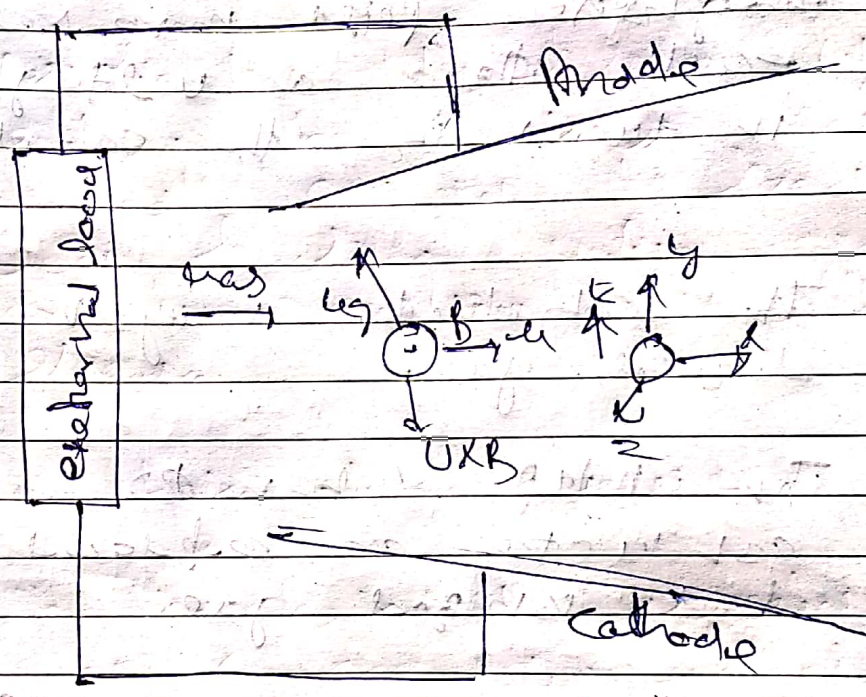 Anode
external load
Gas
y
E
B
u
x
UXB
Z
Cathode